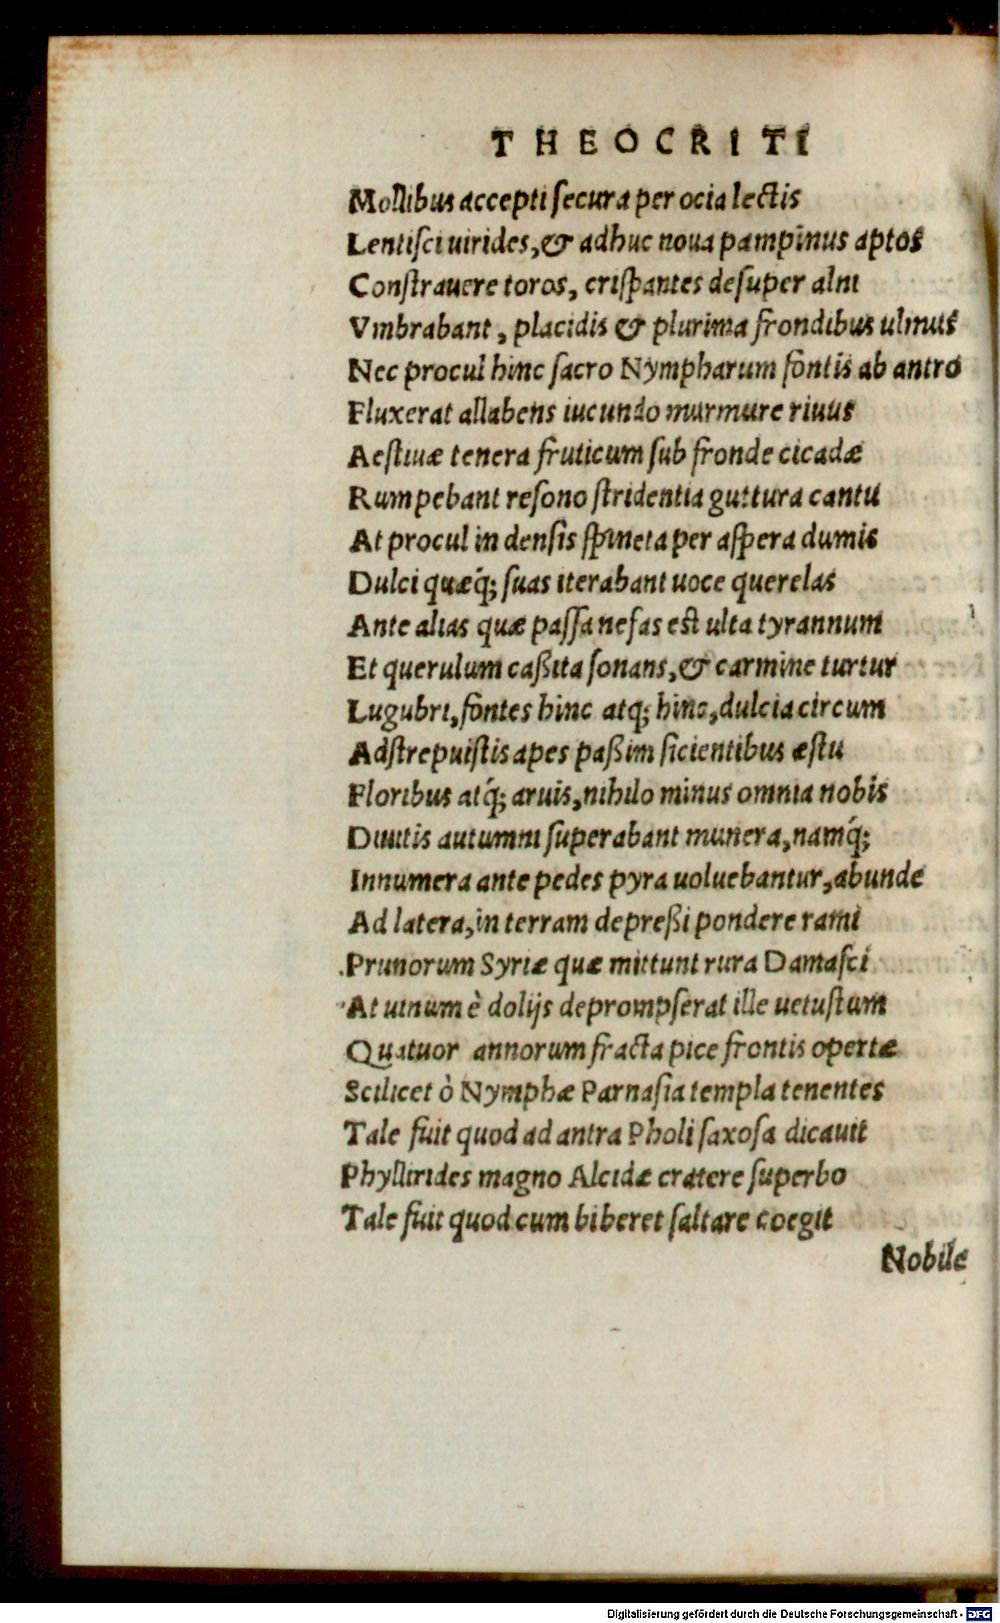 THEOCRITI
Mollibus accepti secura per ocia lectis
Lentisci uirides, & adhuc noua pampinus aptos
Constrauere toros, crispantes desuper alni
Vmbrabant, placidis & plurima frondibus ulmus
Nec procul hinc sacro Nympharum fontis ab antro
Fluxerat allabens iucundo murmure riuus
Aestiuæ tenera fruticum sub fronde cicadæ
Rumpebant resono stridentia guttura cantu
At procul in densis spineta per aspera dumis
Dulci quæq́; suas iterabant uoce querelas
Ante alias quæ passa nefas est ulta tyrannum
Et querulum caßita sonans, & carmine turtur
Lugubri, fontes hinc atq; hinc, dulcia circum
Adstrepuistis apes paßim sicientibus æstu
Floribus atq́; aruis, nihilo minus omnia nobis
Diuitis autumni superabant munera, namq́;
Innumera ante pedes pyra uoluebantur, abunde
Ad latera, in terram depreßi pondere rami
Prunorum Syriæ quæ mittunt rura Damasci
At uinum è dolijs deprompserat ille uetustum
Quatuor annorum fracta pice frontis opertæ
Scilicet ò Nymphæ Parnasia templa tenentes
Tale fuit quod ad antra Pholi saxosa dicauit
Phyllirides magno Alcidæ cratere superbo
Tale fuit quod cum biberet saltare coegit
Nobile
Digitalisierung gefördert durch die Deutsche Forschungsgemeinschaft - DFG